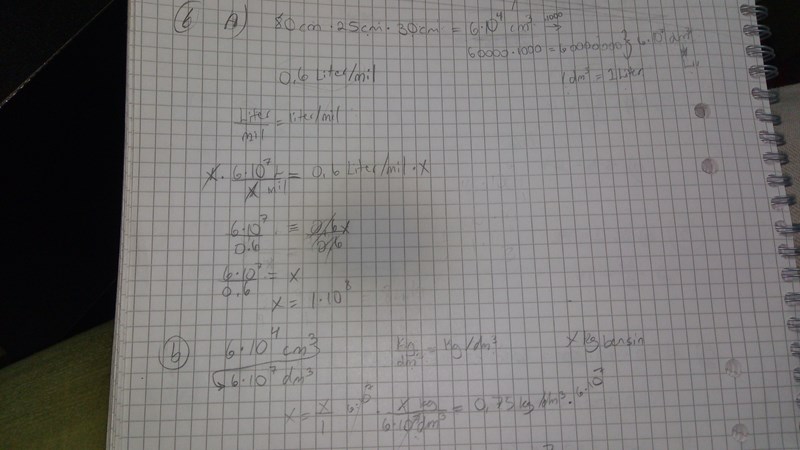 6 A) 80cm · 25cm · 30cm = 6·10⁴ cm³ 1000 →
60000·1000 = 60000000 6·10⁷ dm³
0,6 Liter/mil 1 dm³ = 1 Liter
Liter/mil = liter/mil
x · 6·10⁷ L / x mil = 0,6 Liter/mil · x
6·10⁷ / 0.6 = 0,6x / 0,6
6·10⁷ / 0.6 = x
x = 1·10⁸
b 6·10⁴ cm³ kg/dm³ = kg/dm³ x kg bensin
6·10⁷ dm³
x = x/1 6·10⁷ · x kg / 6·10⁷ dm³ = 0,75 kg/dm³ · 6·10⁷